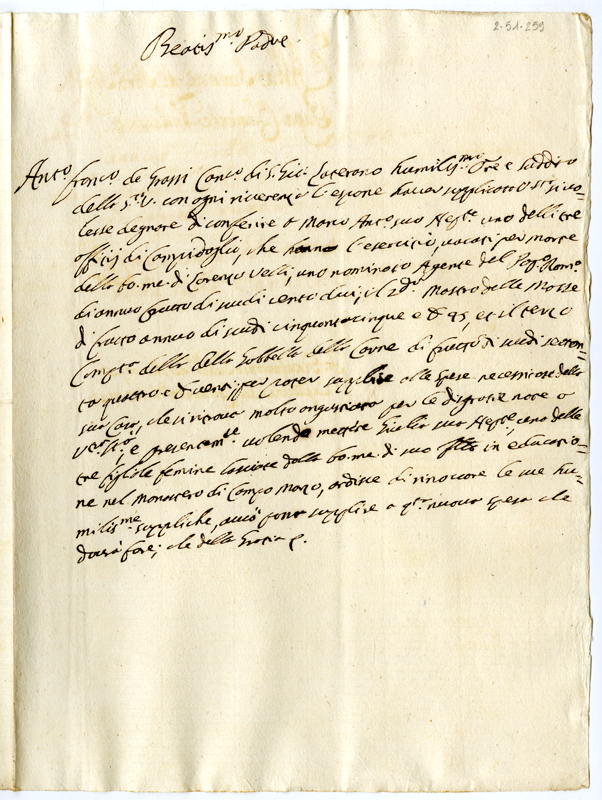 2-51-259
Beatis.mo Padre.
Ant.o Franc.o de Grassi Can.co di S. Gio: Laterano humiliss.mo Ore e suddito
della S.tà V. con ogni riverenza l'espone haver supplicato V. S.tà si vo=
lesse degnare di conferire a Marco Ant.o suo Nep.te uno delli tre
offitij di Campidoglio, che hanno l'esercitio, vacati per morte
della bo: me: di Lorenzo Velli, uno nominato Agente del Pop.o Rom.o
di annuo frutto di scudi cento dieci, il 2.do Mastro delle Mosse
di frutto annuo di scudi cinquantacinque e 95, et il terzo
Comp.to della della Gabbella della Carne di frutto di scudi settan=
ta quattro e venti, per poter supplire alle spese necessarie della
sua Casa, che si ritrova molto angustiata per le disgratie note a
V.ra S.tà, e presentem.te volendo mettere Giulia sua Nep.te, una delle
tre figliole femine lasciate dalla bo: me: di suo in educatio=
ne nel Monastero di Campo Marzo, ardisce di rinovare le sue hu=
miliss.me suppliche, acciò possa supplire a q.ta nuova spesa che
dovrà fare; che della Gratia &.